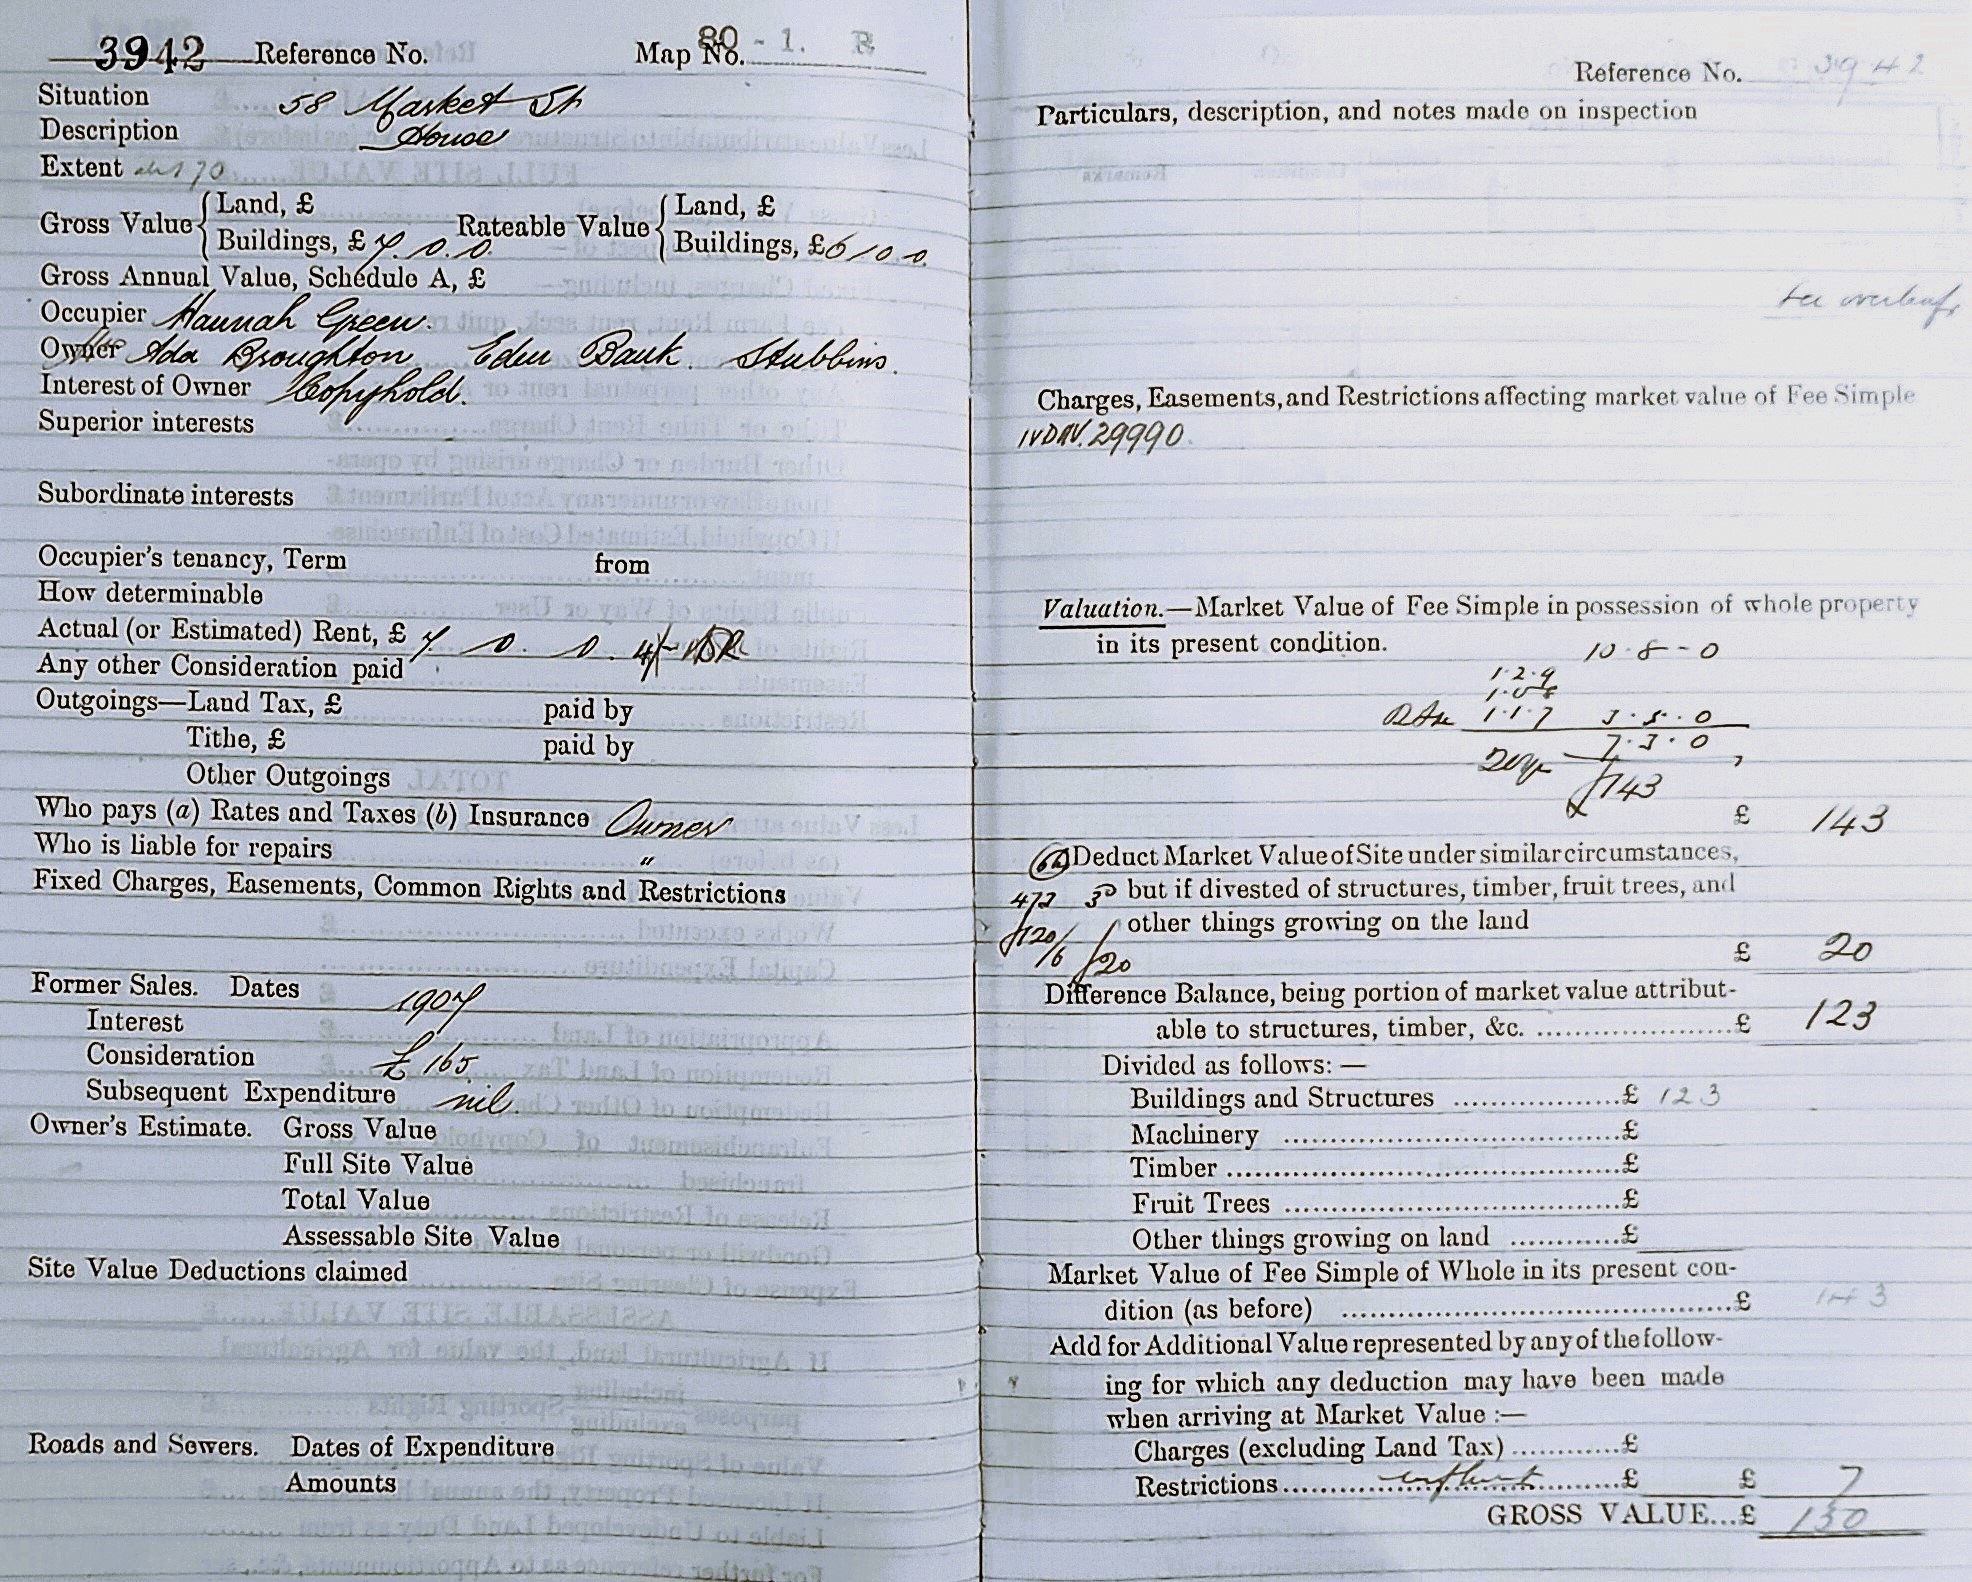 3942 Reference No. Map No. 80 - 1. R
Situation 58 Market St
Description House
Extent 170
Gross Value { Land, £
Buildings, £ 7. 0. 0. Rateable Value { Land, £
Buildings, £ 6 10 0
Gross Annual Value, Schedule A, £
Occupier Hannah Green.
Owner Ada Broughton Eden Bank. Stubbins.
Interest of Owner Copyhold.
Superior interests
Subordinate interests
Occupier's tenancy, Term from
How determinable
Actual (or Estimated) Rent, £ 7 0. 0. 4/-
Any other Consideration paid
Outgoings—Land Tax, £ paid by
Tithe, £ paid by
Other Outgoings
Who pays (a) Rates and Taxes (b) Insurance Owner
Who is liable for repairs "
Fixed Charges, Easements, Common Rights and Restrictions
Former Sales. Dates 1907
Interest
Consideration £165.
Subsequent Expenditure nil.
Owner's Estimate. Gross Value
Full Site Value
Total Value
Assessable Site Value
Site Value Deductions claimed
Roads and Sewers. Dates of Expenditure
Amounts
Reference No. 3942
Particulars, description, and notes made on inspection
see overleaf
Charges, Easements, and Restrictions affecting market value of Fee Simple
IVDAV. 29990.
Valuation.—Market Value of Fee Simple in possession of whole property
in its present condition.
10 - 8 - 0
1. 2. 9
1. 1. 7 3. 5. 0
7. 3. 0
20yp £143
£ 143
Deduct Market Value of Site under similar circumstances,
472 but if divested of structures, timber, fruit trees, and
other things growing on the land
£120/6 £20 £ 20
Difference Balance, being portion of market value attribut-
able to structures, timber, &c. £ 123
Divided as follows: —
Buildings and Structures £ 123
Machinery £
Timber £
Fruit Trees £
Other things growing on land £
Market Value of Fee Simple of Whole in its present con-
dition (as before) £ 143
Add for Additional Value represented by any of the follow-
ing for which any deduction may have been made
when arriving at Market Value :—
Charges (excluding Land Tax) £
Restrictions £ £ 7
GROSS VALUE...£ 150